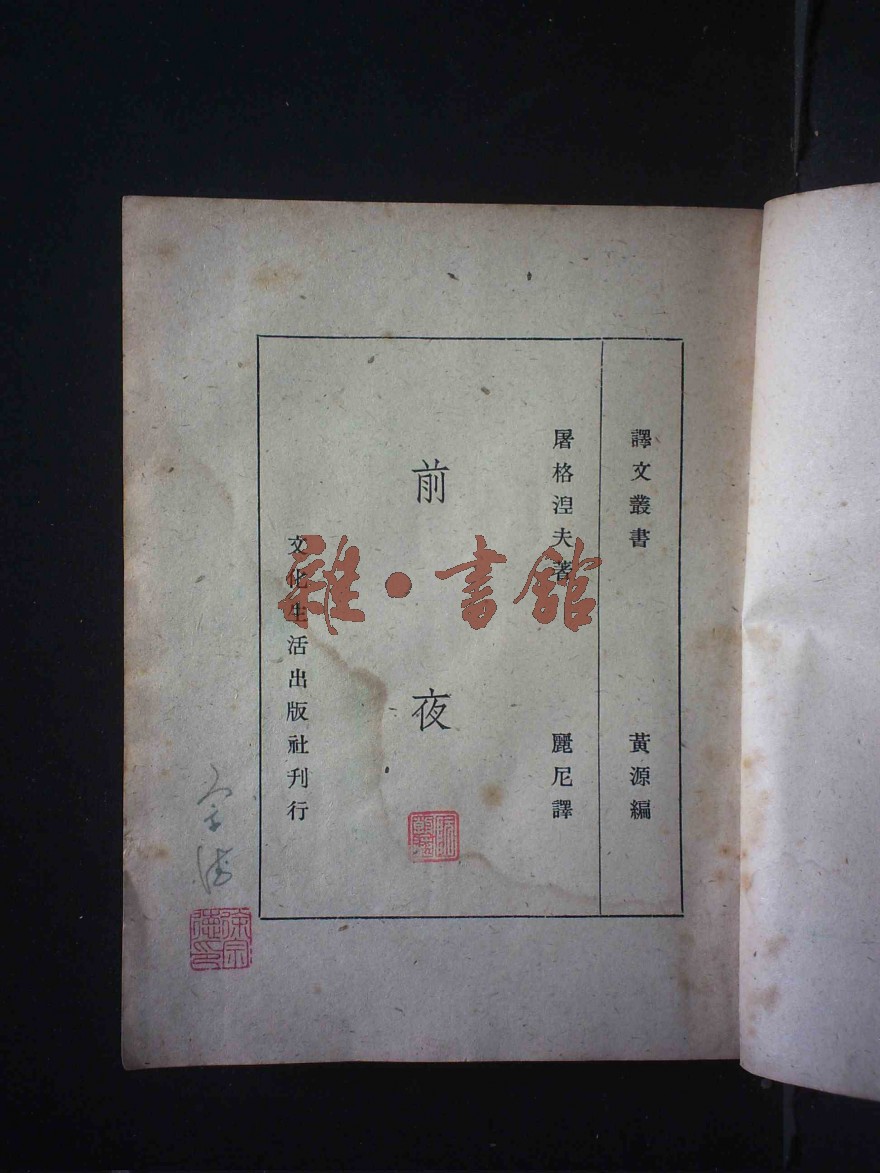 譯文叢書
黃源編
屠格涅夫著
麗尼譯
前夜
文化生活出版社刋行
雜·書館
徐宗德印